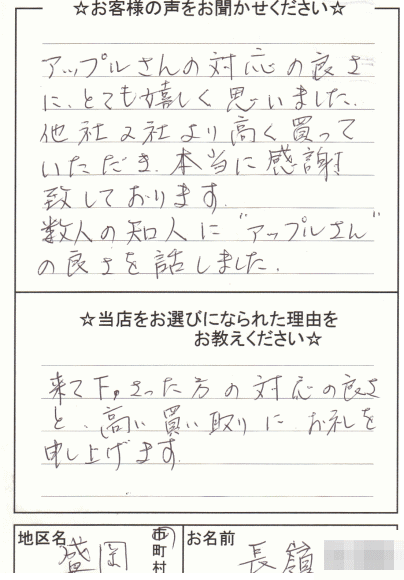 ☆お客様の声をお聞かせください☆
アップルさんの対応の良さ
に、とても嬉しく思いました。
他社2社より高く買って
いただき、本当に感謝
致しております。
数人の知人に"アップルさん"
の良さを話しました。
☆当店をお選びになられた理由を
お教えください☆
来て下さった方の対応の良さ
と、高い買い取りにお礼を
申し上げます。
地区名 盛岡 市町村 お名前 長嶺